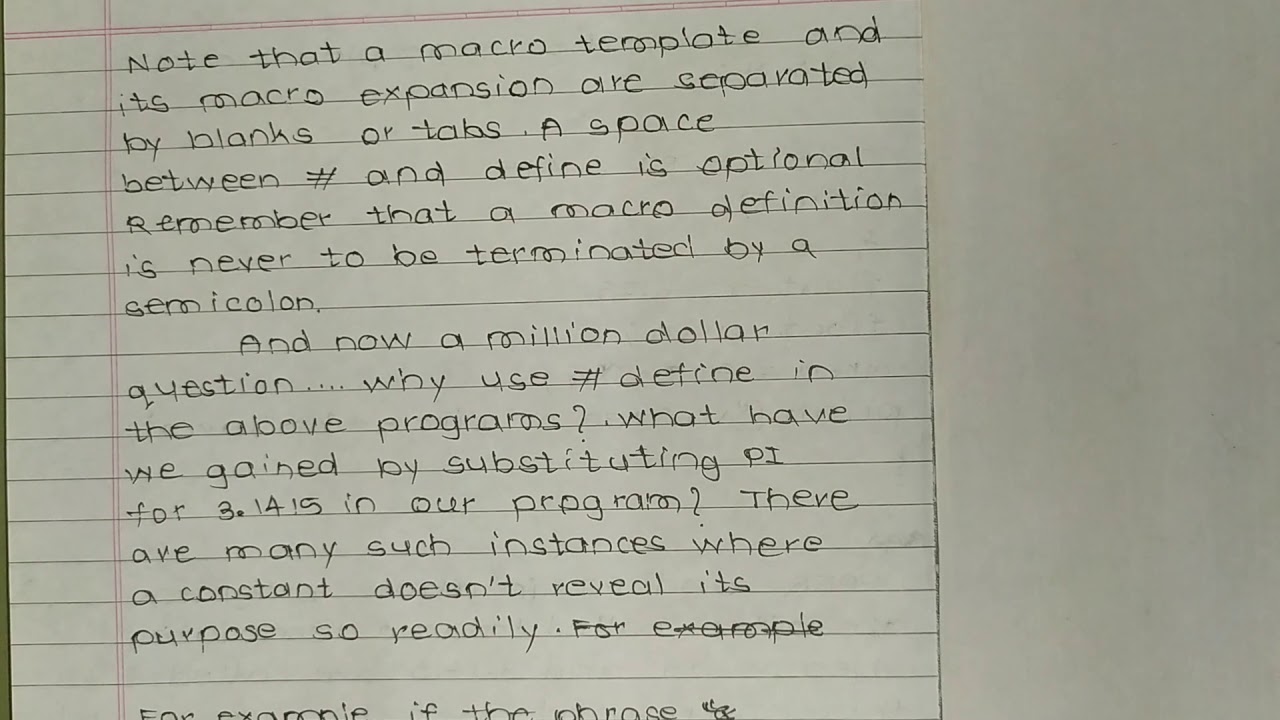 Note that a macro template and
its macro expansion are separated
by blanks or tabs. A space
between # and define is optional
Remember that a macro definition
is never to be terminated by a
semicolon.
And now a million dollar
question.... why use # define in
the above programs? What have
we gained by substituting PI
for 3.1415 in our program? There
are many such instances where
a constant doesn't reveal its
purpose so readily. For example
For example if the phrase